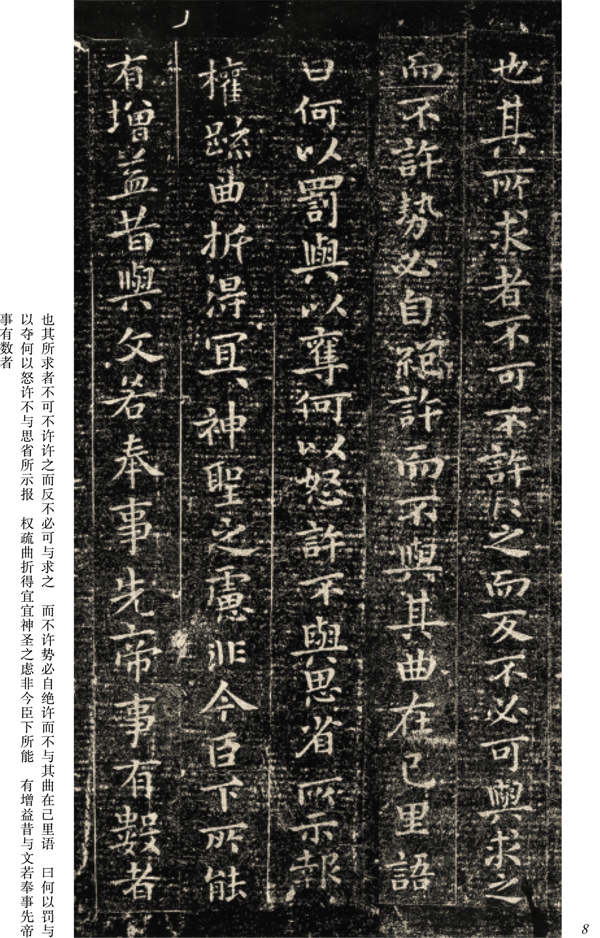 也其所求者不可不許許之而反不必可與求之
而不許勢必自絕許而不與其曲在己里語
曰何以罰與以奪何以怒許不與思省所示報
權疏曲折得宜宜神聖之慮非今臣下所能
有增益昔與文若奉事先帝事有數者
也其所求者不可不许许之而反不必可与求之　而不许势必自绝许而不与其曲在己里语　曰何以罚与
以夺何以怒许不与思省所示报　权疏曲折得宜宜神圣之虑非今臣下所能　有增益昔与文若奉事先帝
事有数者
8